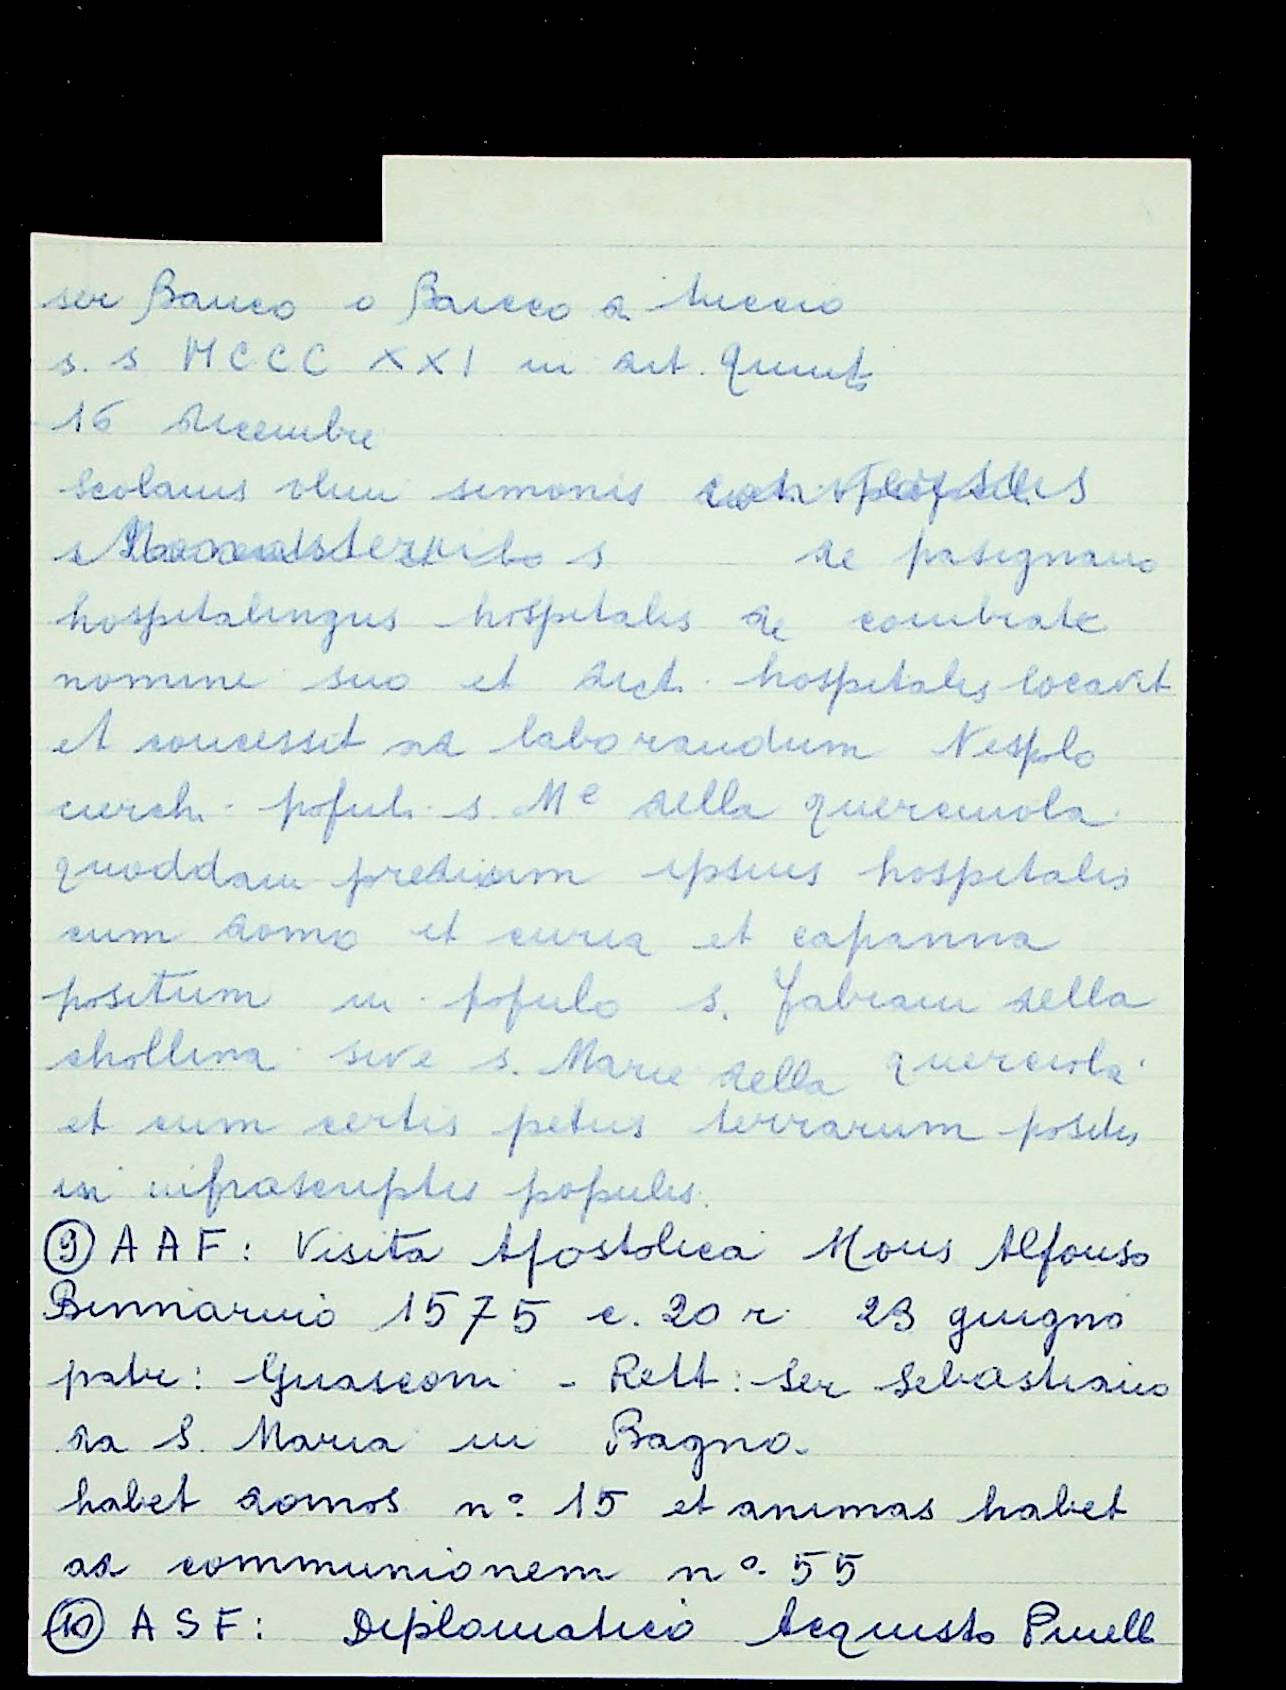 ser Banco o Bacco d. Puccio
s. s MCCC XXI in dit. Quint
16 dicembre
Scolaius olim simonis
de pasignano
hospitalingus hospitalis de combiate
nomine suo et dict. hospitalis locavit
et concessit ad laborandum Nespolo
cierchi populi s. Me della querciuola
quoddam predium ipsius hospitalis
cum domo et curia et capanna
positum in populo s. Fabiani della
chollina sive s. Marie della querciola
et cum certis petiis terrarum positis
in infrascriptis populis.
(9) AAF: Visita Apostolica Mons Alfonso
Binnarino 1575 c. 20 r 23 giugno
patr: Guasconi - Rett: Ser Sebastiano
da S. Maria in Bagno.
habet domos n° 15 et animas habet
ad communionem n° 55
(10) ASF: Diplomatico Acquisto Pinelli